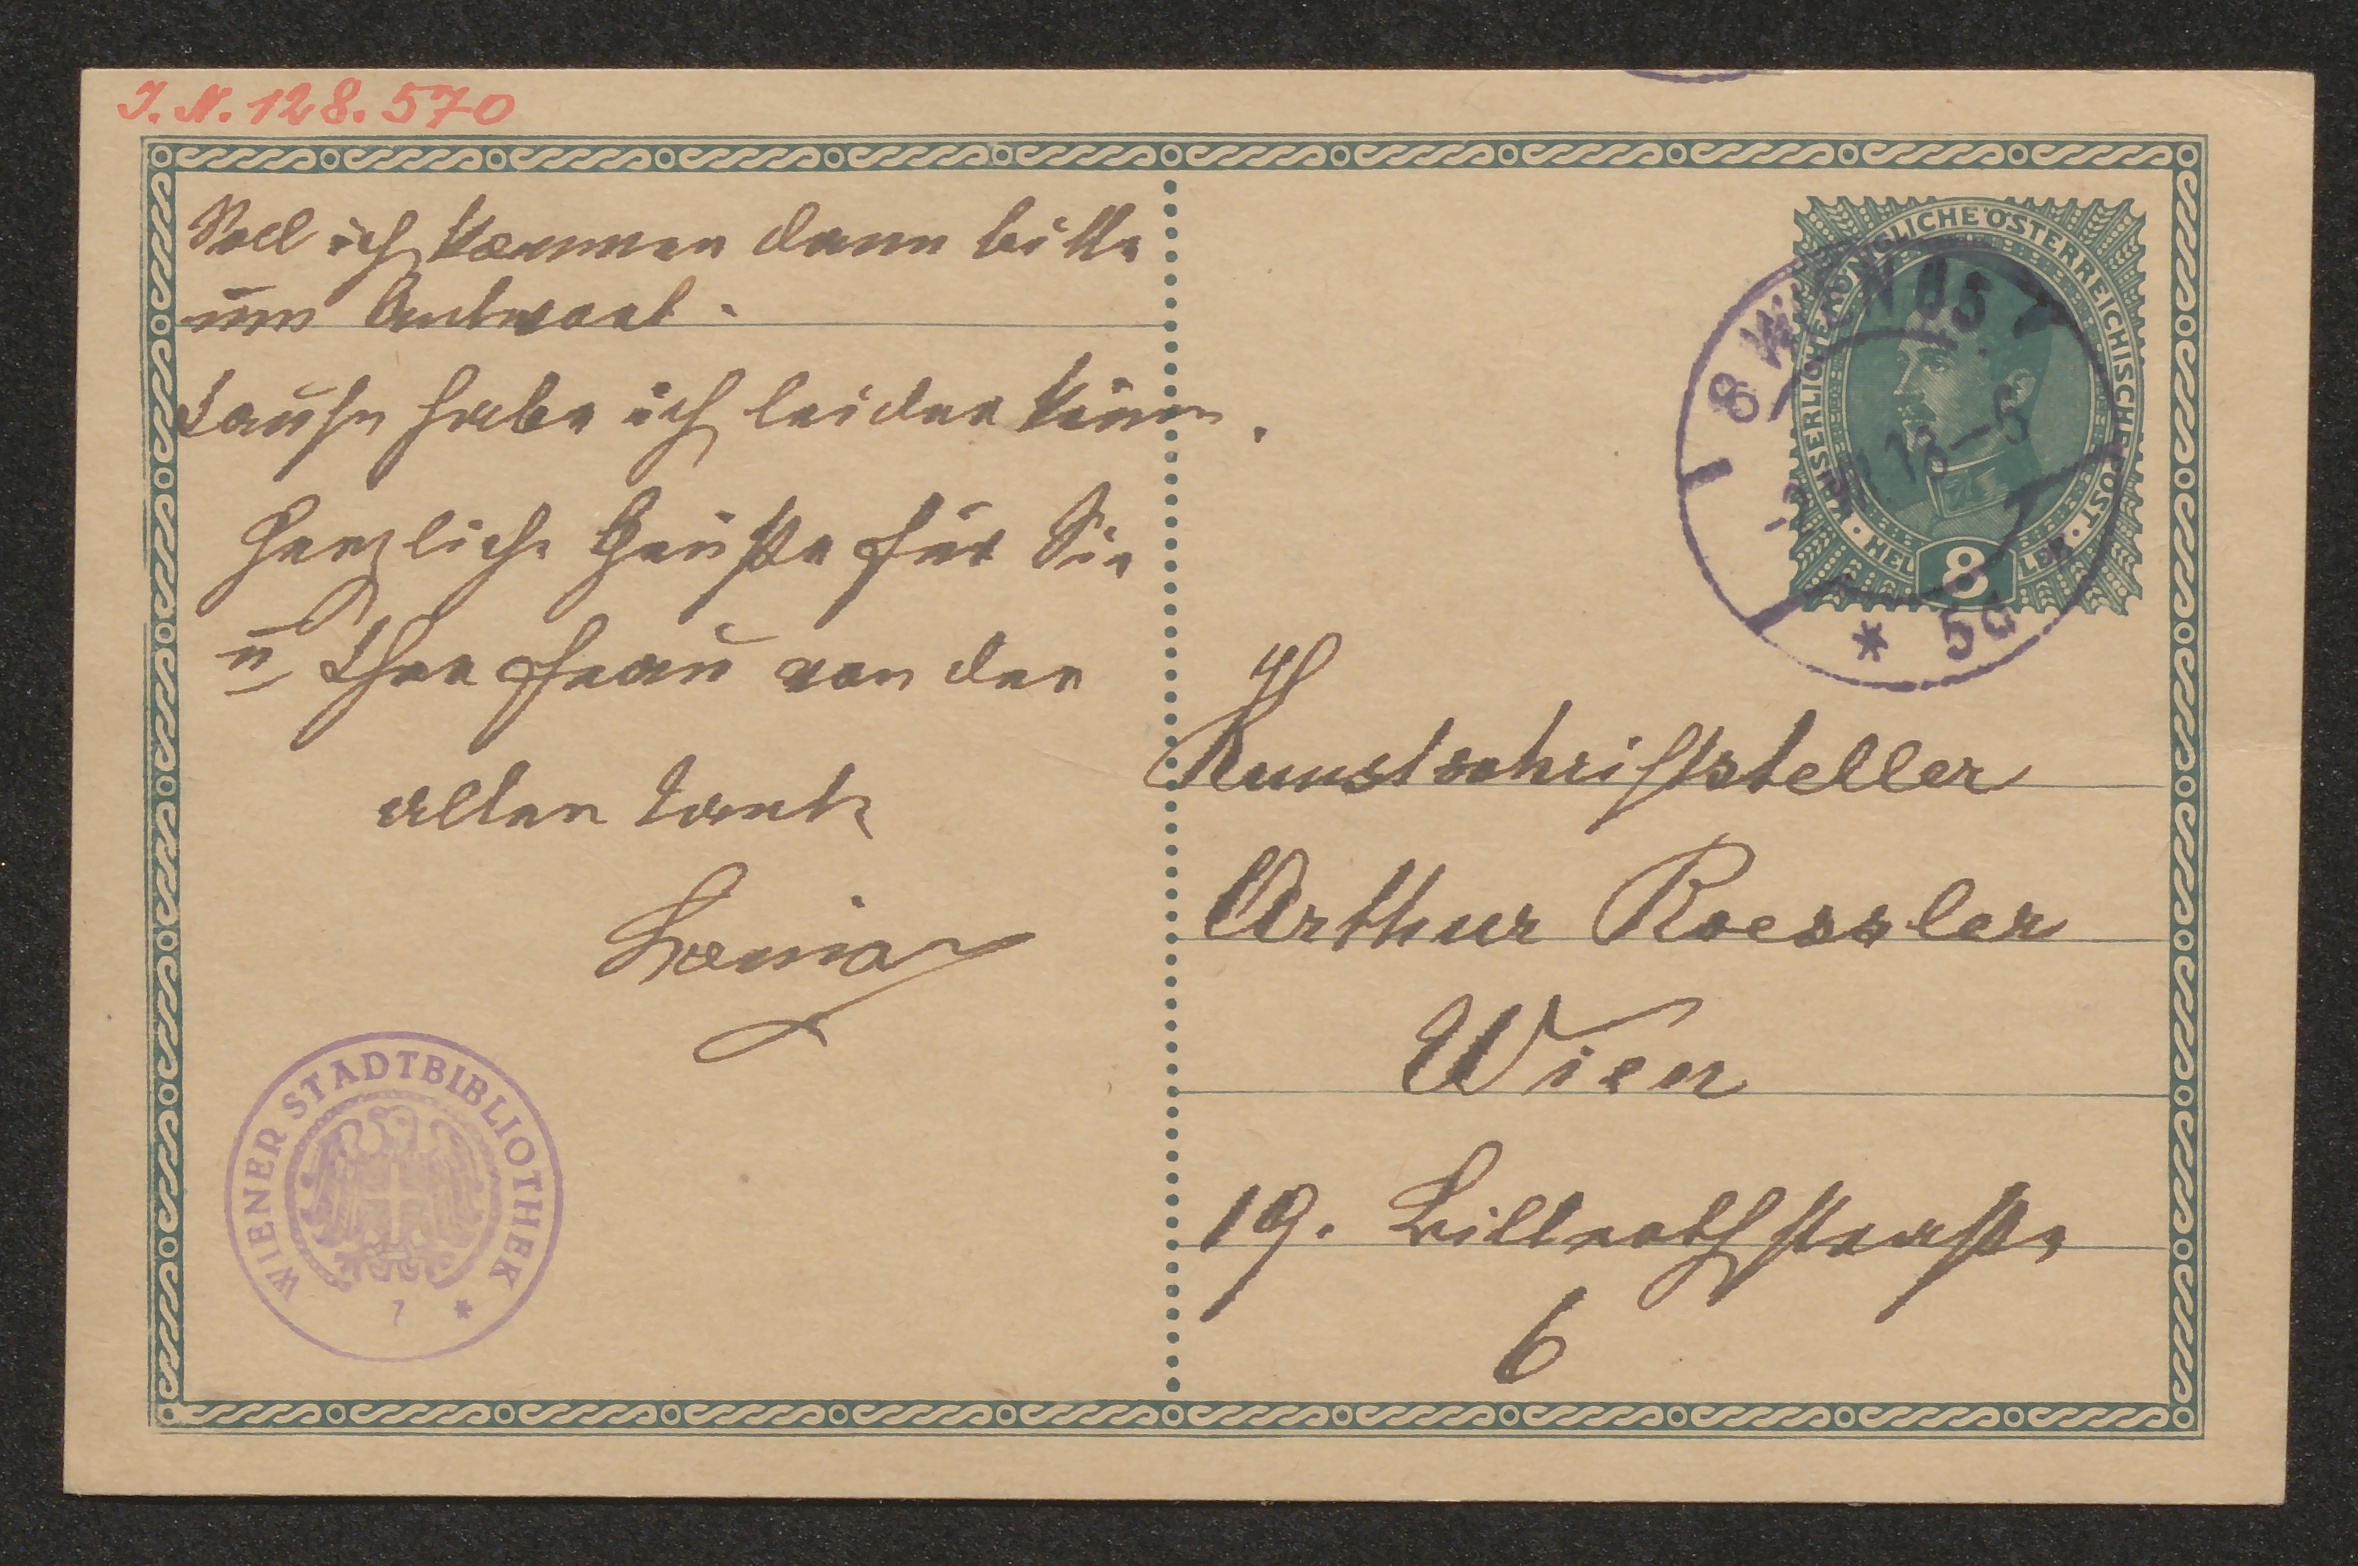 J. N. 128.570
Soll ich kommen dann bitte
um Antwort.
habe ich leider keine.
Herzliche Grüße für Sie
u Ihre Frau von der
alten Tante
KAISERLICHE KÖNIGLICHE ÖSTERREICHISCHE POST
HELLER
8
8 WIEN
18-6
* 5a
H
Kunstschriftsteller
Arthur Roessler
Wien
19. Billrothstraße
6
WIENER STADTBIBLIOTHEK